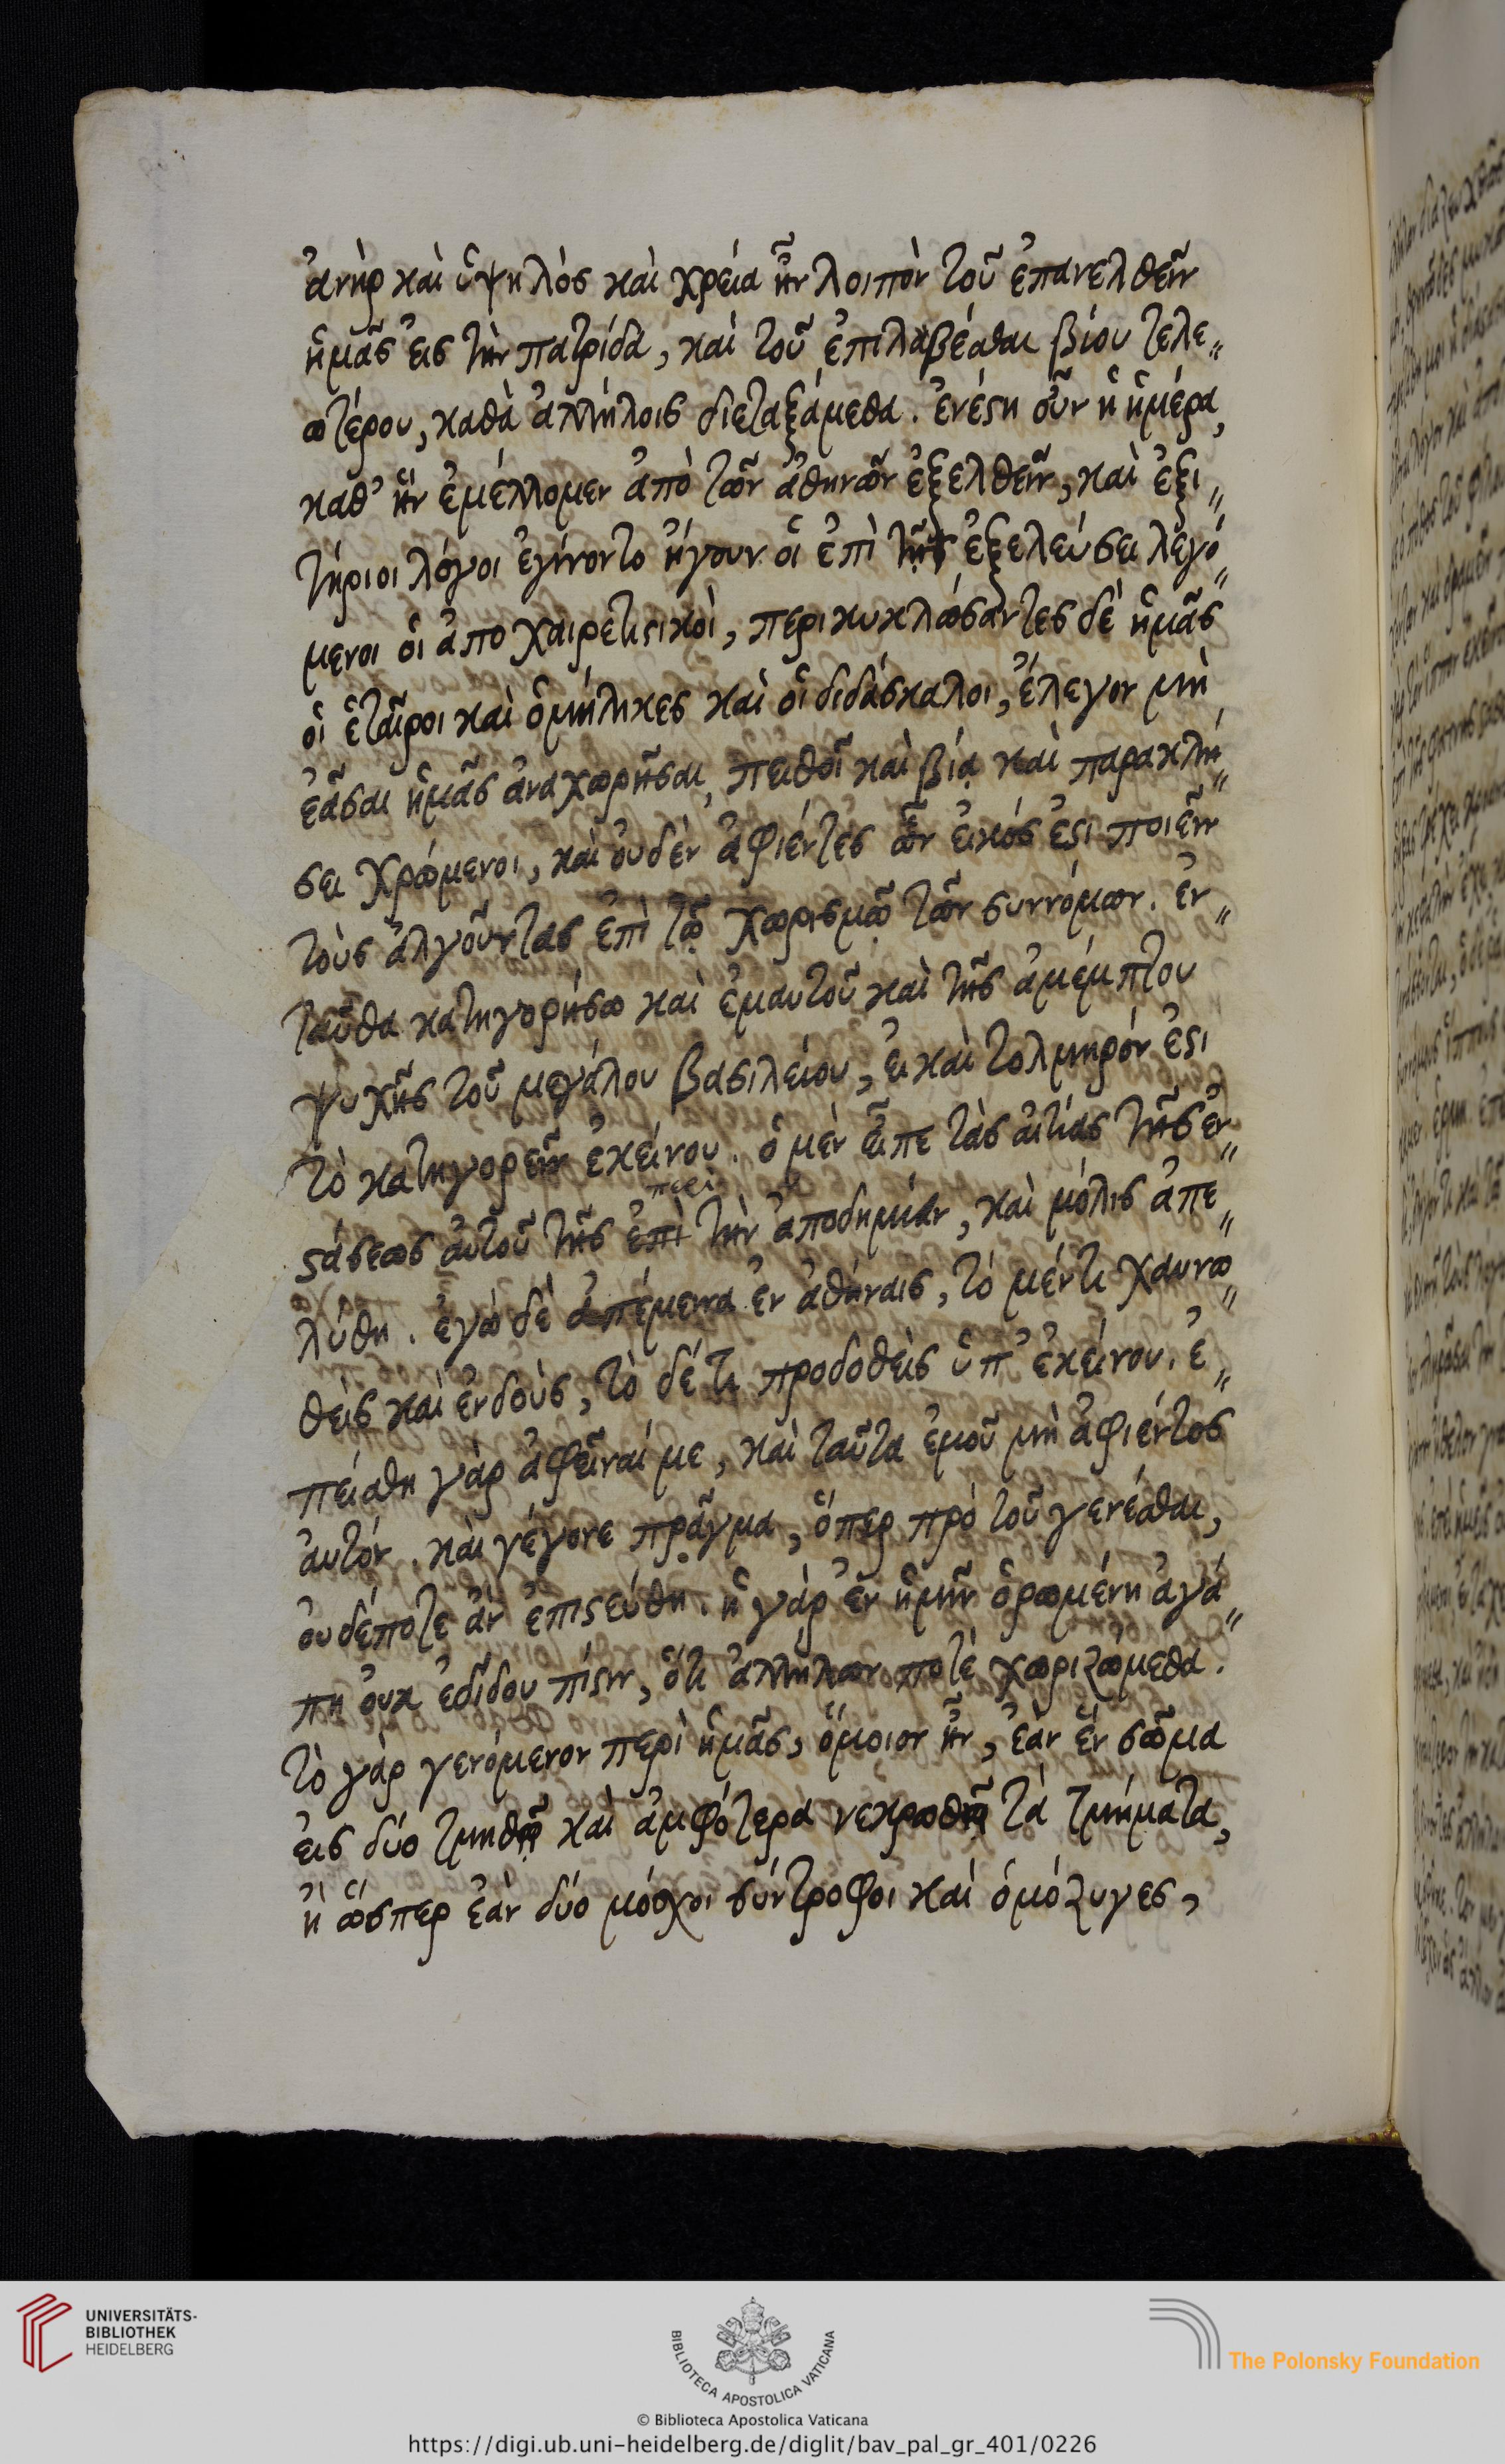 ἀνὴρ καὶ ὑψηλὸς καὶ χρεία ἦν λοιπὸν τοῦ ἐπανελθεῖν
ἡμᾶς εἰς τὴν πατρίδα, καὶ τοῦ ἐπιλαβέσθαι βίου τελε„
ωτέρου, καθὰ ἀλλήλοις διεταξάμεθα. ἐνέστη οὖν ἡ ἡμέρα,
καθ' ἣν ἐμέλλομεν ἀπὸ τῶν ἀθηνῶν ἐξελθεῖν, καὶ ἐξι„
τήριοι λόγοι ἐγίνοντο ἤγουν οἱ ἐπὶ τῇ ἐξελεύσει λεγό„
μενοι οἱ ἀποχαιρετιστικοὶ, περικυκλώσαντες δὲ ἡμᾶς
οἱ ἑταῖροι καὶ ὁμήλικες καὶ οἱ διδάσκαλοι, ἔλεγον μὴ
ἐᾶσαι ἡμᾶς ἀναχωρῆσαι, πειθοῖ καὶ βίᾳ καὶ παρακλή„
σει χρώμενοι, καὶ οὐδὲν ἀφιέντες ὧν εἰκός ἐστι ποιεῖν
τοὺς ἀλγοῦντας ἐπὶ τῷ χωρισμῷ τῶν συννόμων. ἐν„
ταῦθα κατηγορήσω καὶ ἐμαυτοῦ καὶ τῆς ἀμέμπτου
ψυχῆς τοῦ μεγάλου βασιλείου, εἰ καὶ τολμηρόν ἐστι
τὸ κατηγορεῖν ἐκείνου. ὁ μὲν εἶπε τὰς αἰτίας τῆς ἐν„
περὶ
στάσεως αὐτοῦ τῆς ἐπὶ τὴν ἀποδημίαν, καὶ μόλις ἀπε„
λύθη. ἐγὼ δὲ ἀπέμεινα ἐν ἀθήναις, τὸ μέν τι χαυνω„
θεὶς καὶ ἐνδοὺς, τὸ δέ τι προδοθεὶς ὑπ' ἐκείνου. ἐ„
πείσθη γὰρ ἀφεῖναί με, καὶ ταῦτα ἐμοῦ μὴ ἀφιέντος
αὐτόν. καὶ γέγονε πρᾶγμα, ὅπερ πρὸ τοῦ γενέσθαι,
οὐδέποτε ἂν ἐπιστεύθη. ἡ γὰρ ἐν ἡμῖν ὁρωμένη ἀγά„
πη οὐκ ἐδίδου πίστιν, ὅτι ἀλλήλων ποτὲ χωριζώμεθα.
τὸ γὰρ γενόμενον περὶ ἡμᾶς, ὅμοιον ἦν, ἐὰν ἓν σῶμα
εἰς δύο τμηθῇ καὶ ἀμφότερα νεκρωθῇ τὰ τμήματα,
ἢ ὥσπερ ἐὰν δύο μόσχοι σύντροφοι καὶ ὁμόζυγες,
UNIVERSITÄTS-
BIBLIOTHEK
HEIDELBERG
BIBLIOTECA APOSTOLICA VATICANA
The Polonsky Foundation
© Biblioteca Apostolica Vaticana
https://digi.ub.uni-heidelberg.de/diglit/bav_pal_gr_401/0226